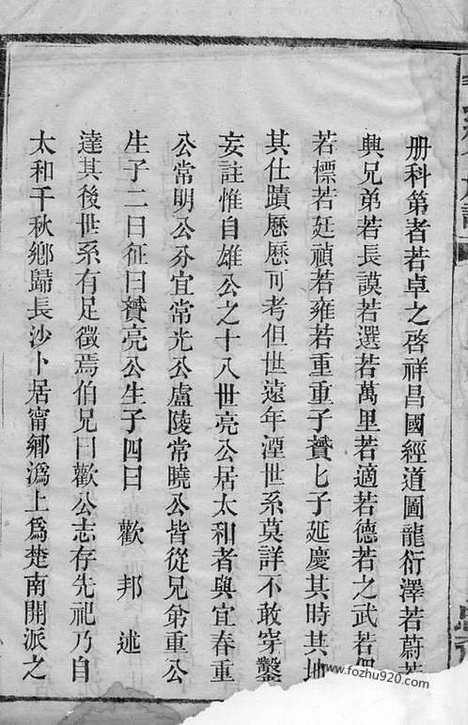 册科第者若卓之啓祥昌國經道圖龍衍澤若蔚若
典兄弟若長謨若選若萬里若適若德若之武若
若標若廷禎若雍若重重子贇七子延慶其時其地
其仕蹟歷歷可考但世遠年湮世系莫詳不敢穿鑿
妄註惟自雄公之十八世亮公居太和者與宜春重
公常明公分宜常光公盧陵常曉公皆從兄弟重公
生子二曰征曰贇亮公生子四曰歡邦述
達其後世系有足徵焉伯兄曰歡公志存先祀乃自
太和千秋鄉歸長沙卜居甯鄉溈上爲楚南開派之
www.fozhu920.com